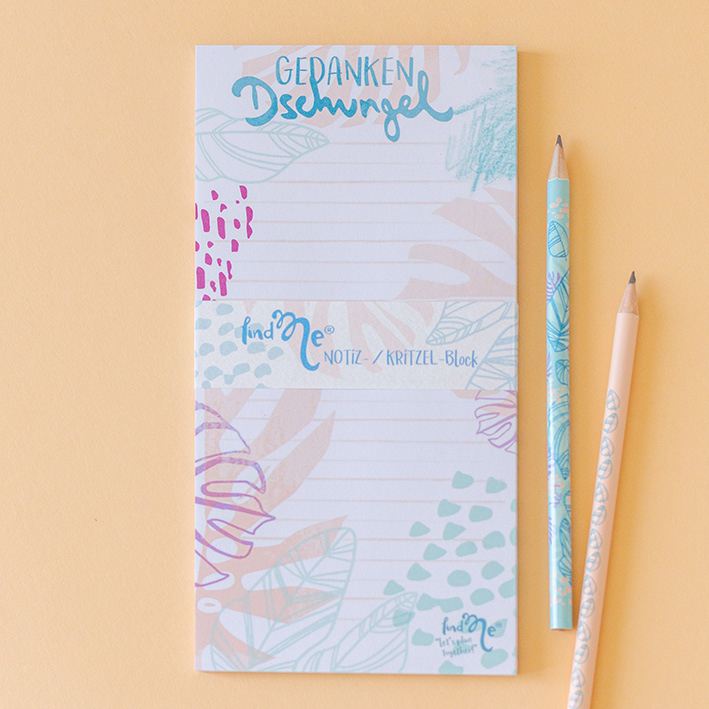 GEDANKEN
Dschungel
findMe®
NOTIZ- / KRITZEL-Block
findMe®
"Let's plan
together!"